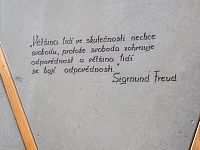 „Většina lidí ve skutečnosti nechce
svobodu, protože svoboda zahrnuje
odpovědnost a většina lidí
se bojí odpovědnosti"
Sigmund Freud